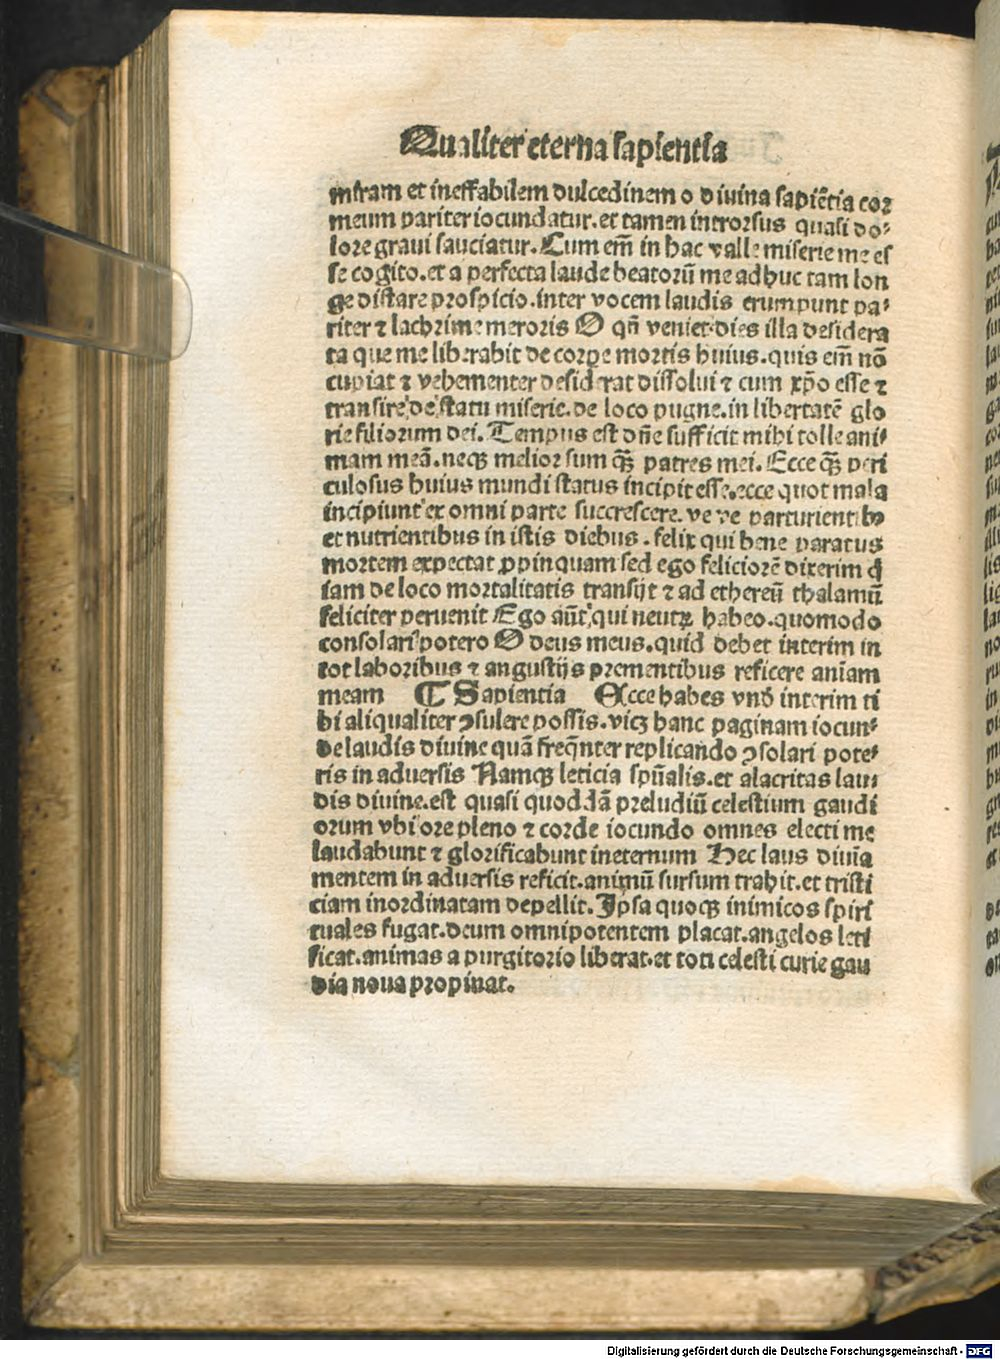 Qualiter eterna sapientia
miram et ineffabilem dulcedinem o diuina sapiẽtia coꝛ
meum pariter iocundatur.et tamen introꝛsus quasi do⸗
loꝛe graui sauciatur.Cum em̃ in hac valle miserie me es
se cogito.et a perfecta laude beatoꝛũ me adhuc tam lon
ge distare pꝛospicio.inter vocem laudis erumpunt pa⸗
riter ⁊ lachꝛime meroꝛis O qñ veniet dies illa desidera
ta que me liberabit de coꝛpe moꝛtis huius.quis em̃ nõ
cupiat ⁊ vehementer desiderat dissolui ⁊ cum xp̃o esse ⁊
transire de statu miserie.de loco pugne.in libertatẽ glo
rie filioꝛum dei.Tempus est dñe sufficit mihi tolle ani⸗
mam meã.neqꝫ melioꝛ sum qꝫ̃ patres mei.Ecce qꝫ̃ peri
culosus huius mundi status incipit esse.ecce quot mala
incipiunt ex omni parte succrescere.ve ve parturientibꝰ
et nutrientibus in istis diebus.felix qui bene paratus
moꝛtem expectat ꝓpinquam sed ego felicioꝛẽ dixerim q̃
iam de loco moꝛtalitatis transijt ⁊ ad ethereũ thalamũ
feliciter peruenit Ego aũt qui neutꝝ habeo.quomodo
consolari potero O deus meus.quid debet interim in
tot laboꝛibus ⁊ angustijs pꝛementibus reficere aniam
meam ¶ Sapientia Ecce habes vnđ interim ti
bi aliqualiter ꝯsulere possis.vicꝫ hanc paginam iocun⸗
de laudis diuine quã freq̃nter replicando ꝯsolari pote⸗
ris in aduersis Namqꝫ leticia spũalis.et alacritas lau
dis diuine.est quasi quoddã pꝛeludiũ celestium gaudi
oꝛum vbi oꝛe pleno ⁊ coꝛde iocundo omnes electi me
laudabunt ⁊ gloꝛificabunt ineternum Hec laus diuĩa
mentem in aduersis reficit.animũ sursum trahit.et tristi
ciam inoꝛdinatam depellit.Ipsa quoqꝫ inimicos spiri
tuales fugat.deum omnipotentem placat.angelos leti
ficat.animas a purgitoꝛio liberat.et toti celesti curie gau
dia noua pꝛopinat.
Digitalisierung gefördert durch die Deutsche Forschungsgemeinschaft - DFG